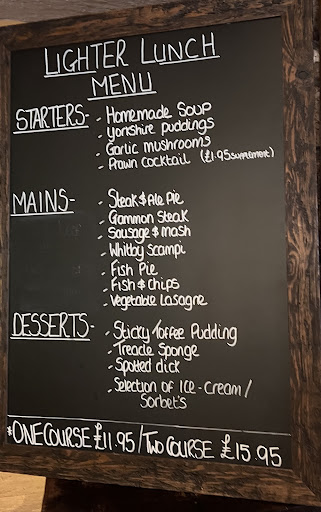 LIGHTER LUNCH
MENU
STARTERS- - Homemade Soup
- Yorkshire puddings
- Garlic mushrooms
- Prawn cocktail (£1.95 supplement)
MAINS- - Steak $ Ale Pie
- Gammon Steak
- Sausage $ mash
- Whitby Scampi
- Fish Pie
- Fish $ chips
- Vegetable Lasagne
DESSERTS- - Sticky Toffee Pudding
- Treacle Sponge
- Spotted dick
- Selection of ICE-CREAM/
Sorbet's
*ONE COURSE £11.95/TWO COURSE £15.95